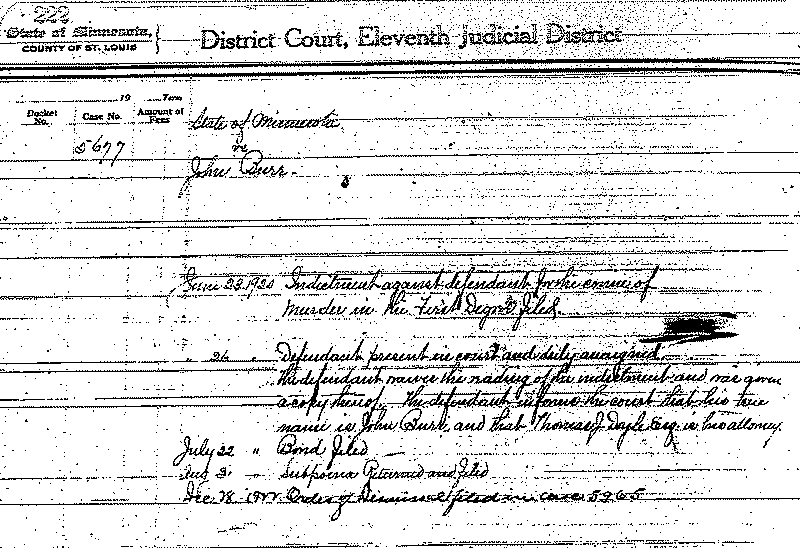 222
State of Minnesota,
COUNTY OF ST. LOUIS
District Court, Eleventh Judicial District
19 Term
Docket No. Case No. Amount of Fees
State of Minnesota
5677 vs
John Burr.
June 23. 1920 Indictment against defendant for the crime of
Murder in the First Degree filed.
" 26 " Defendant present in court and duly arraigned.
The defendant waives the reading of the indictment and was given
a copy thereof. The defendant informs the court that his true
name is John Burr, and that Thomas J Doyle Esq. is his attorney.
July 22 " Bond Filed
Aug 3 " Subpoena Returned and filed
Dec. 18. Order of Dismissal filed in case 5965